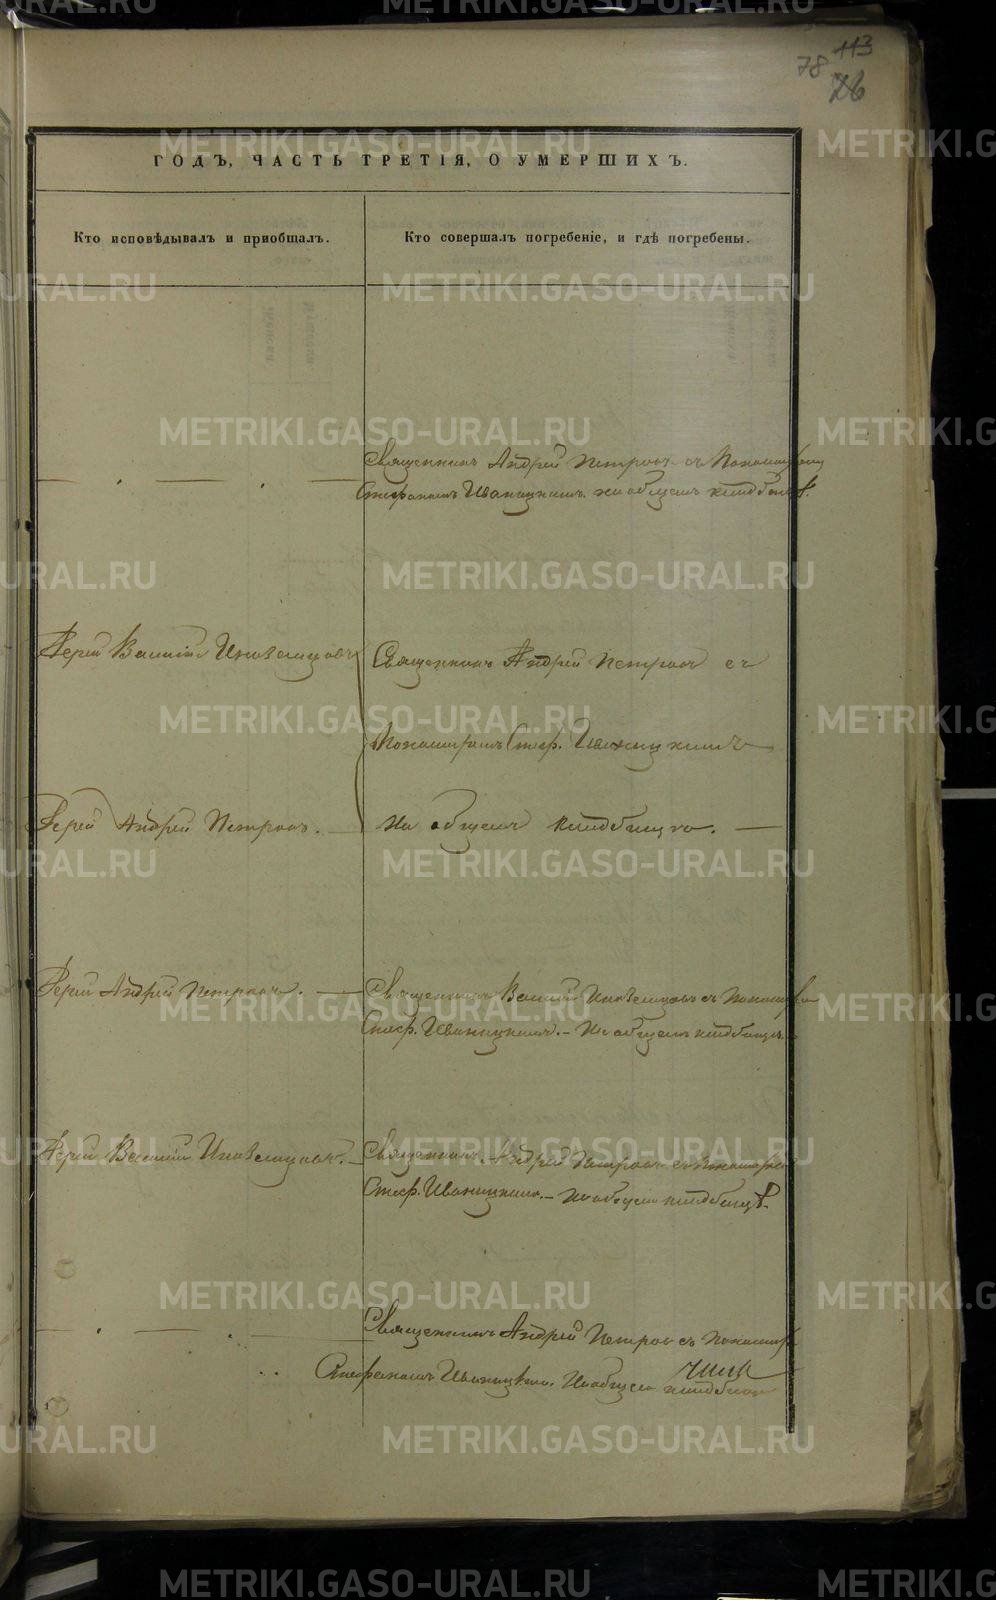 113
78
76
ГОДЪ, ЧАСТЬ ТРЕТІЯ, О УМЕРШИХЪ.
Кто исповѣдывалъ и приобщалъ.
Кто совершалъ погребеніе, и гдѣ погребены.
Священникъ Андрей Петровъ съ Пономаремъ
Стефаномъ Иваницкимъ на общемъ кладбищѣ.
Іерей Василій
Священникъ Андрей Петровъ съ
Пономаремъ Стеф. Иваницкимъ
Іерей Андрей Петровъ.
На общемъ кладбищѣ.
Іерей Андрей Петровъ.
Священникъ Василій съ Пономаремъ
Стеф. Иваницкимъ. – На общемъ кладбищѣ.
Іерей Василій
Священникъ Андрей Петровъ съ Пономаремъ
Стеф. Иваницкимъ. – На общемъ кладбищѣ.
Священникъ Андрей Петровъ съ Пономаремъ
Стефаномъ Иваницкимъ. На общемъ кладбищѣ
METRIKI.GASO-URAL.RU